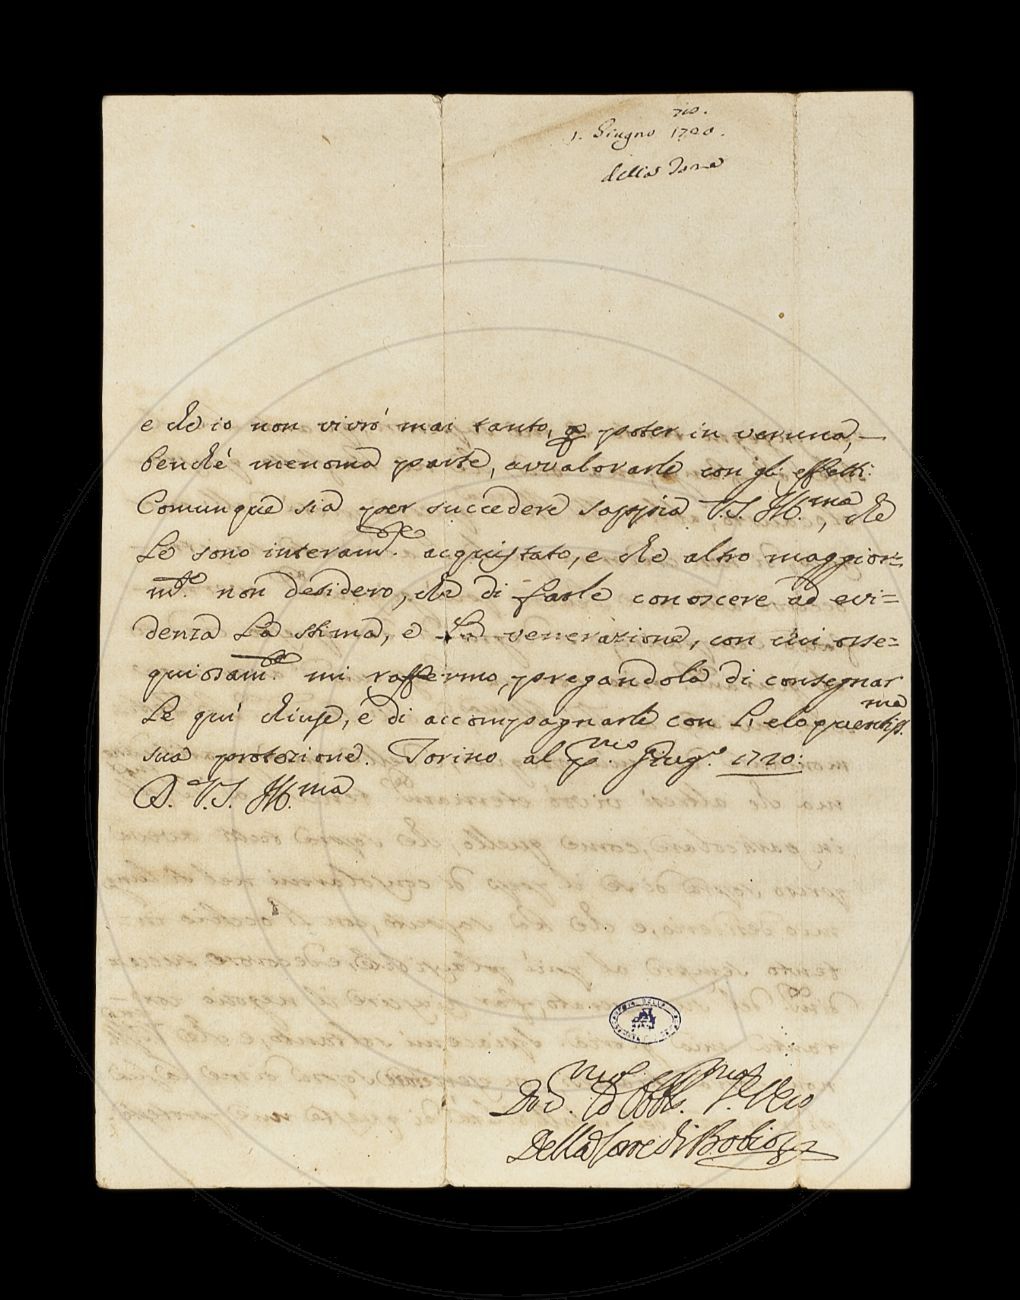 710.
1. Giugno 1720.
della Torre
e che io non vivrò mai tanto, p poter in veruna,
benché menoma parte, avvalorarle con gli effetti:
Comunque sia per succedere sappia V.S. Ill.ma, che
Le sono interam.te acquistato, e che altro maggior=
m.te non desidero, che di farle conoscere ad evi=
denza La stima, e La venerazione, con cui osse=
quiosam.te mi raffermo, pregandola di consegnar
Le quì chiuse, e di accompagnarle con L'eloquentiss.ma
sua protezione. Torino al p.mo Giug.o 1720:
D. V.S. Ill.ma
Div.mo ed Obbl.mo Ser.e Vero
Della Torre di Bobio